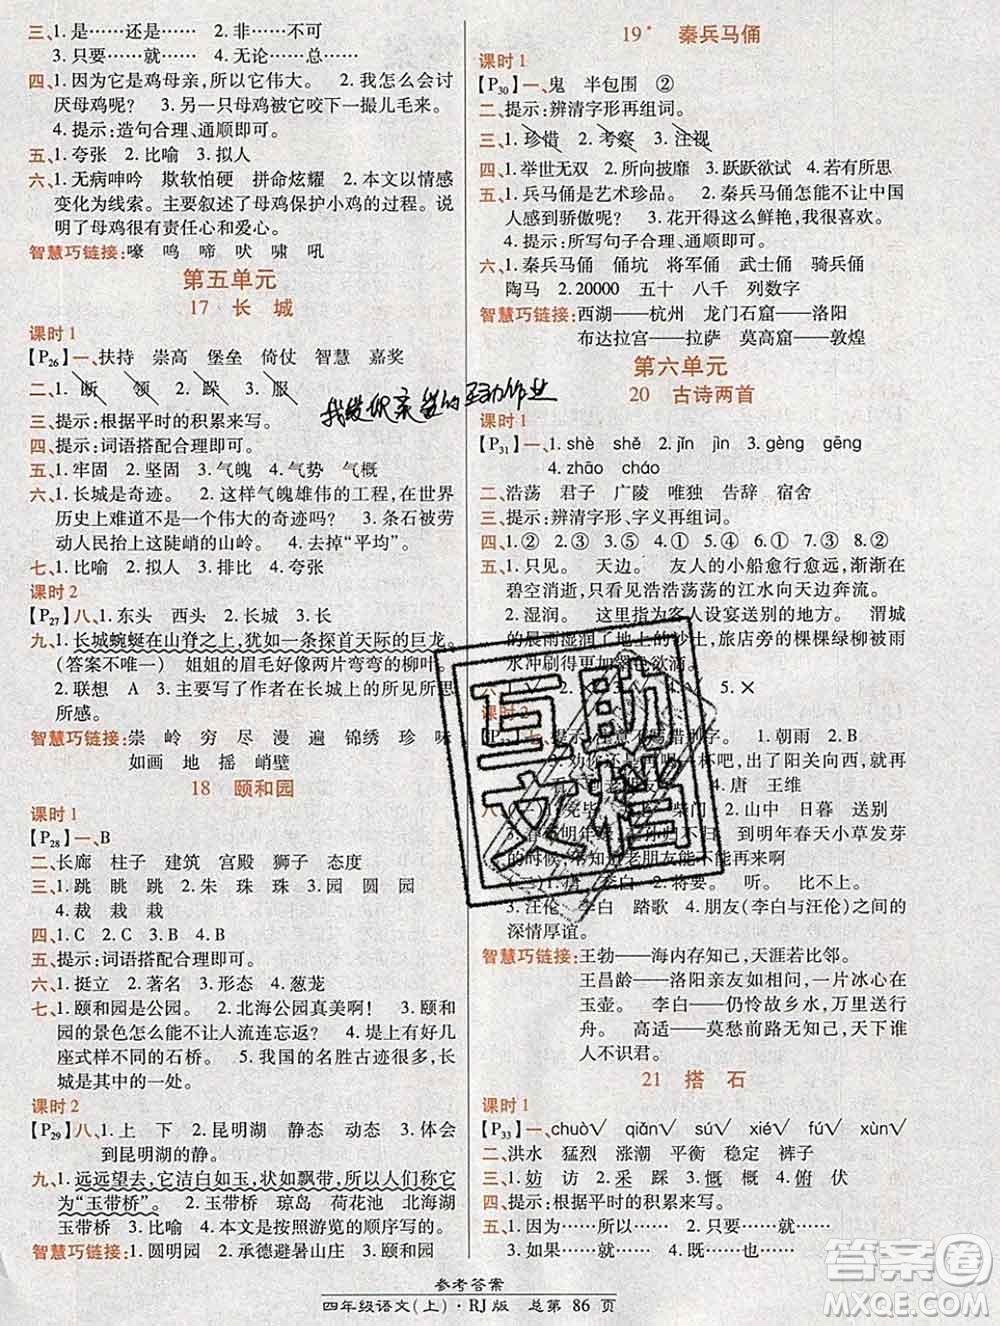 三、1.是……还是…… 2.非……不可
3.只要……就…… 4.无论……总……
四、1.因为它是鸡母亲,所以它伟大。 2.我怎么会讨
厌母鸡呢? 3.另一只母鸡被它咬下一撮儿毛来。
4.提示:造句合理、通顺即可。
五、1.夸张 2.比喻 3.拟人
六、1.无病呻吟 欺软怕硬 拼命炫耀 2.本文以情感
变化为线索。主要叙述了母鸡保护小鸡的过程。说
明了母鸡很有责任心和爱心。
智慧巧链接:嚎 鸣 啼 吠 啸 吼
第五单元
17 长 城
课时1
【P26】一、扶持 崇高 堡垒 倚仗 智慧 嘉奖
二、1.断 领 2.跺 3.服
三、提示:根据平时的积累来写。
四、提示:词语搭配合理即可。
五、1.牢固 2.坚固 3.气魄 4.气势 气概
六、1.长城是奇迹。 2.这样气魄雄伟的工程,在世界
历史上难道不是一个伟大的奇迹吗? 3.条石被劳
动人民抬上这陡峭的山岭。 4.去掉“平均”。
七、1.比喻 2.拟人 3.排比 4.夸张
课时2
【P27】八、1.东头 西头 2.长城 3.长
九、1.长城蜿蜒在山脊之上,犹如一条探首天际的巨龙。
(答案不唯一) 姐姐的眉毛好像两片弯弯的柳叶。
2.联想 A 3.主要写了作者在长城上的所见所思
所感。
智慧巧链接:崇 岭 穷 尽 漫 遍 锦绣 珍 味
如画 地 摇 峭壁
18 颐和园
课时1
【P28】一、B
二、长廊 柱子 建筑 宫殿 狮子 态度
三、1.跳 眺 跳 2.朱 珠 珠 3.园 圆 园
4.裁 栽 栽
四、1.C 2.C 3.B 4.B
五、提示:词语搭配合理即可。
六、1.挺立 2.著名 3.形态 4.葱茏
七、1.颐和园是公园。 2.北海公园真美啊! 3.颐和
园的景色怎么能不让人流连忘返? 4.堤上有好几
座式样不同的石桥。 5.我国的名胜古迹很多,长
城是其中的一处。
课时2
【P29】八、1.上 下 2.昆明湖 静态 动态 3.体会
到昆明湖的静。
九、1.远远望去,它洁白如玉,状如飘带,所以人们称它
为“玉带桥”。 2.玉带桥 琼岛 荷花池 北海湖
玉带桥 3.比喻 4.本文是按照游览的顺序写的。
智慧巧链接:1.圆明园 2.承德避暑山庄 3.颐和园
19* 秦兵马俑
课时1
【P30】一、鬼 半包围 ②
二、提示:辨清字形再组词。
三、1.珍惜 2.考察 3.注视
四、1.举世无双 2.所向披靡 3.跃跃欲试 4.若有所思
五、1.兵马俑是艺术珍品。 2.秦兵马俑怎能不让中国
人感到骄傲呢? 3.花开得这么鲜艳,我很喜欢。
4.提示:所写句子合理、通顺即可。
六、1.秦兵马俑 俑坑 将军俑 武士俑 骑兵俑
陶马 2.20000 五十 八千 列数字
智慧巧链接:西湖——杭州 龙门石窟——洛阳
布达拉宫——拉萨 莫高窟——敦煌
第六单元
20 古诗两首
课时1
【P31】一、1.shè shě 2.jǐn jìn 3.gèng gēng
4.zhāo cháo
二、浩荡 君子 广陵 唯独 告辞 宿舍
三、提示:辨清字形、字义再组词。
四、1.② 2.③ 3.⑤ 4.① 5.① 6.③ 7.② 8.②
五、1.只见。 天边。 友人的小船愈行愈远,渐渐在
碧空消逝,只看见浩浩荡荡的江水向天边奔流。
2.湿润。 这里指为客人设宴送别的地方。 渭城
的晨雨湿润了地上的沙土,旅店旁的棵棵绿柳被雨
水冲刷得更加翠色欲滴。
5.×
1.朝雨 2.B
杯吧,出了阳关向西,再
4.唐 王维
柴门 2.山中 日暮 送别
到明年春天小草发芽
的时候,常知道老朋友能不能再回来。
李白 2.将要。 听。
3.汪伦 李白 踏歌 4.朋友(李白与汪伦)之间的
深情厚谊。
智慧巧链接:王勃——海内存知己,天涯若比邻。
王昌龄——洛阳亲友如相问,一片冰心在
玉壶。 李白——仍怜故乡水,万里送行
舟。 高适——莫愁前路无知己,天下谁
人不识君。
21 搭 石
课时1
【P33】一、chuò√ qiǎn√ sú√ xié√ fú√ xùn√
二、洪水 猛烈 涨潮 平衡 稳定 裤子
三、1.妨 访 2.采 踩 3.慨 概 4.俯 伏
四、提示:根据平时的积累来写。
五、1.因为……所以…… 2.只要……就……
3.如果……就…… 4.既……也……
我发织亲爱的互动作业
互助
文档
答案圈
MXQE.COM
参考答案
四年级语文(上)·RJ版 总第 86 页